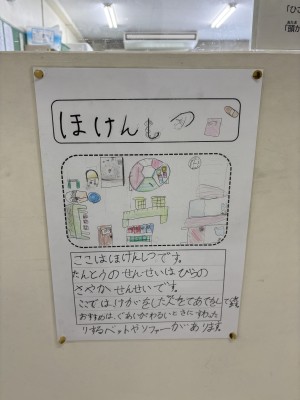 ほけんしつ
ここはほけんしつです。
たんとうのせんせいはひらの
さやかせんせいです。
ここではけがをした
おすすめは、ぐあいがわるいときにすわった
りするベットやソファーがあります
「ひこ
「頭か